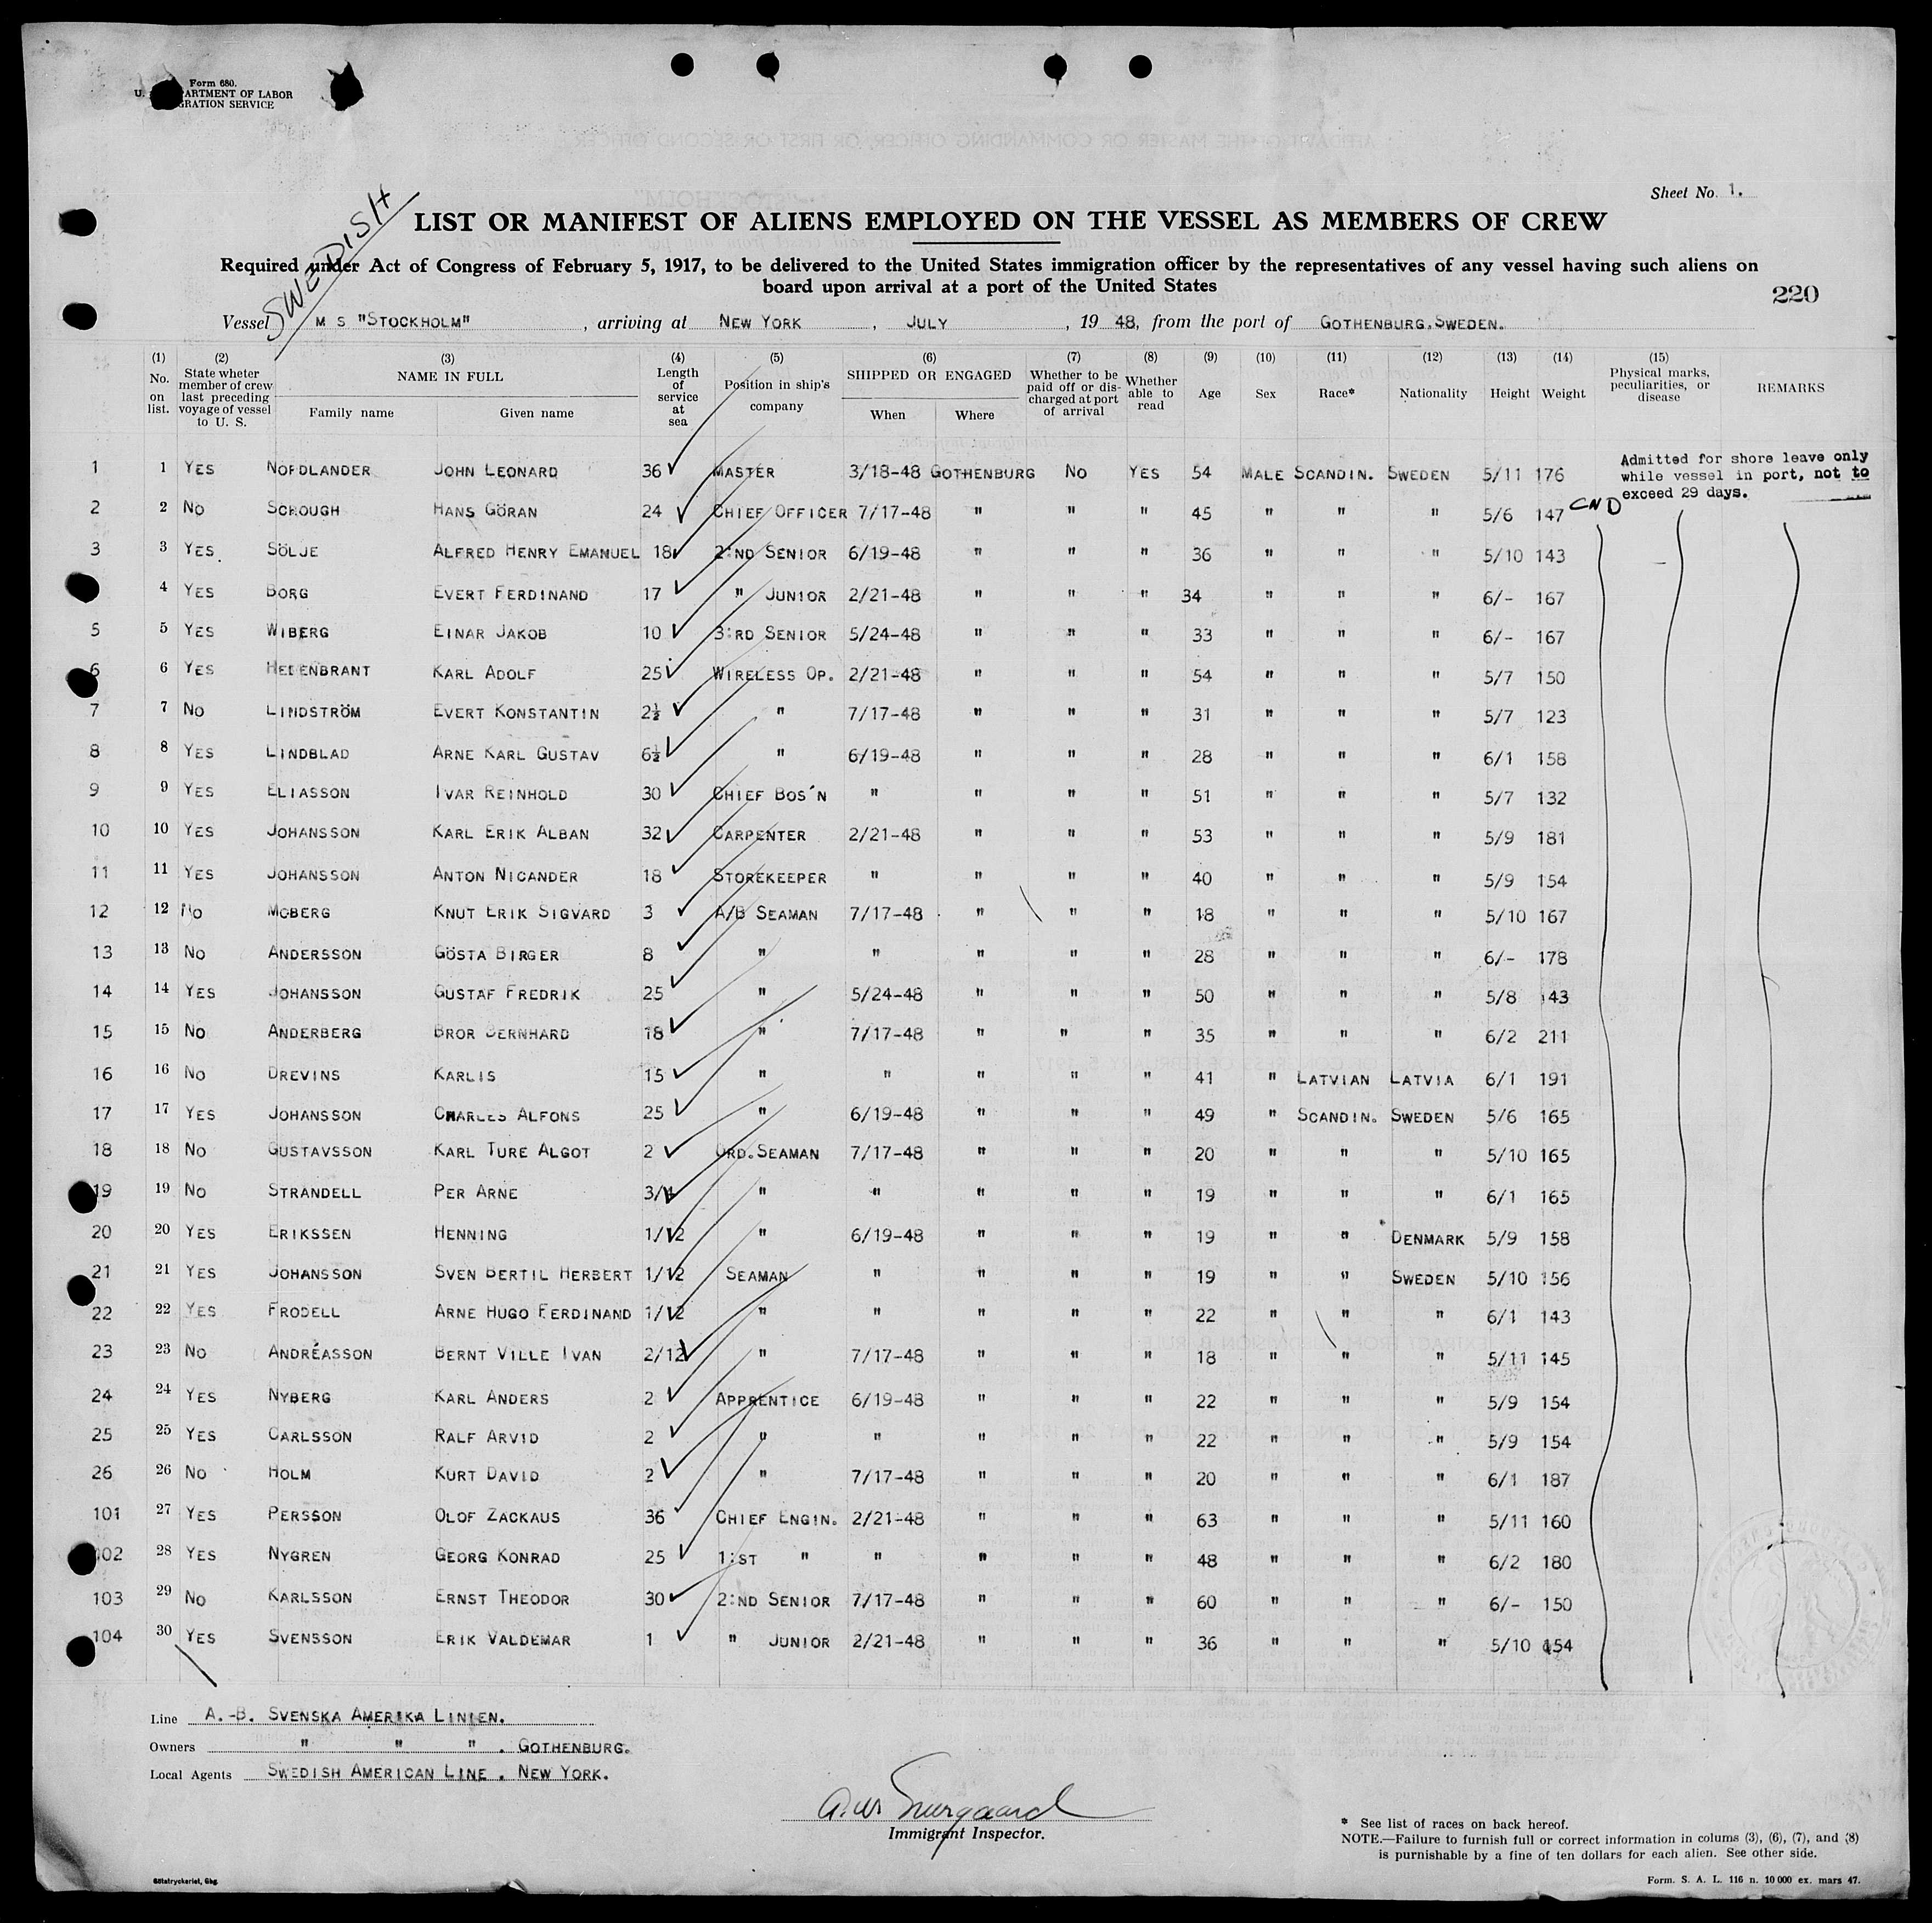 Form 680.
U. ARTMENT OF LABOR
GRATION SERVICE
Sheet No. 1.
SWEDISH
LIST OR MANIFEST OF ALIENS EMPLOYED ON THE VESSEL AS MEMBERS OF CREW
Required under Act of Congress of February 5, 1917, to be delivered to the United States immigration officer by the representatives of any vessel having such aliens on
board upon arrival at a port of the United States
220
Vessel M S "STOCKHOLM", arriving at NEW YORK, JULY, 19 48, from the port of GOTHENBURG, SWEDEN.
(1) (2) (3) (4) (5) (6) (7) (8) (9) (10) (11) (12) (13) (14) (15)
No. on list. State wheter member of crew last preceding voyage of vessel to U. S. NAME IN FULL Family name Given name Length of service at sea Position in ship's company SHIPPED OR ENGAGED When Where Whether to be paid off or discharged at port of arrival Whether able to read Age Sex Race* Nationality Height Weight Physical marks, peculiarities, or disease REMARKS
Admitted for shore leave only
while vessel in port, not to
exceed 29 days.
CND
1 1 YES NORDLANDER JOHN LEONARD 36 MASTER 3/18-48 GOTHENBURG NO YES 54 MALE SCANDIN. SWEDEN 5/11 176
2 2 NO SCROUGH HANS GÖRAN 24 CHIEF OFFICER 7/17-48 " " " 45 " " " 5/6 147
3 3 YES SÖLJE ALFRED HENRY EMANUEL 18 2:ND SENIOR 6/19-48 " " " 36 " " " 5/10 143
4 YES BORG EVERT FERDINAND 17 " JUNIOR 2/21-48 " " " 34 " " " 6/- 167
5 5 YES WIBERG EINAR JAKOB 10 3:RD SENIOR 5/24-48 " " " 33 " " " 6/- 167
6 6 YES HEDENBRANT KARL ADOLF 25 WIRELESS OP. 2/21-48 " " " 54 " " " 5/7 150
7 7 NO LINDSTRÖM EVERT KONSTANTIN 2½ " 7/17-48 " " " 31 " " " 5/7 123
8 8 YES LINDBLAD ARNE KARL GUSTAV 6½ " 6/19-48 " " " 28 " " " 6/1 158
9 9 YES ELIASSON IVAR REINHOLD 30 CHIEF BOS'N " " " " 51 " " " 5/7 132
10 10 YES JOHANSSON KARL ERIK ALBAN 32 CARPENTER 2/21-48 " " " 53 " " " 5/9 181
11 11 YES JOHANSSON ANTON NICANDER 18 STOREKEEPER " " " " 40 " " " 5/9 154
12 12 NO MOBERG KNUT ERIK SIGVARD 3 A/B SEAMAN 7/17-48 " " " 18 " " " 5/10 167
13 13 NO ANDERSSON GÖSTA BIRGER 8 " " " " " 28 " " " 6/- 178
14 14 YES JOHANSSON GUSTAF FREDRIK 25 " 5/24-48 " " " 50 " " " 5/8 143
15 15 NO ANDERBERG BROR BERNHARD 18 " 7/17-48 " " " 35 " " " 6/2 211
16 16 NO DREVINS KARLIS 15 " " " " " 41 " LATVIAN LATVIA 6/1 191
17 17 YES JOHANSSON CHARLES ALFONS 25 " 6/19-48 " " " 49 " SCANDIN. SWEDEN 5/6 165
18 18 NO GUSTAVSSON KARL TURE ALGOT 2 ORD.SEAMAN 7/17-48 " " " 20 " " " 5/10 165
19 19 NO STRANDELL PER ARNE 3/4 " " " " " 19 " " " 6/1 165
20 20 YES ERIKSSEN HENNING 1/12 " 6/19-48 " " " 19 " " DENMARK 5/9 158
21 21 YES JOHANSSON SVEN BERTIL HERBERT 1/12 SEAMAN " " " " 19 " " SWEDEN 5/10 156
22 22 YES FRODELL ARNE HUGO FERDINAND 1/12 " " " " " 22 " " " 6/1 143
23 23 NO ANDRÉASSON BERNT VILLE IVAN 2/12 " 7/17-48 " " " 18 " " " 5/11 145
24 24 YES NYBERG KARL ANDERS 2 APPRENTICE 6/19-48 " " " 22 " " " 5/9 154
25 25 YES CARLSSON RALF ARVID 2 " " " " " 22 " " " 5/9 154
26 26 NO HOLM KURT DAVID 2 " 7/17-48 " " " 20 " " " 6/1 187
101 27 YES PERSSON OLOF ZACKAUS 36 CHIEF ENGIN. 2/21-48 " " " 63 " " " 5/11 160
102 28 YES NYGREN GEORG KONRAD 25 1:ST " " " " " 48 " " " 6/2 180
103 29 NO KARLSSON ERNST THEODOR 30 2:ND SENIOR 7/17-48 " " " 60 " " " 6/- 150
104 30 YES SVENSSON ERIK VALDEMAR 1 " JUNIOR 2/21-48 " " " 36 " " " 5/10 154
Line A.-B. SVENSKA AMERIKA LINIEN.
Owners " " " . GOTHENBURG.
Local Agents SWEDISH AMERICAN LINE, NEW YORK.
Immigrant Inspector.
* See list of races on back hereof.
NOTE.—Failure to furnish full or correct information in colums (3), (6), (7), and (8)
is purnishable by a fine of ten dollars for each alien. See other side.
Götatryckeriet, Gbg.
Form. S. A. L. 116 n. 10 000 ex. mars 47.